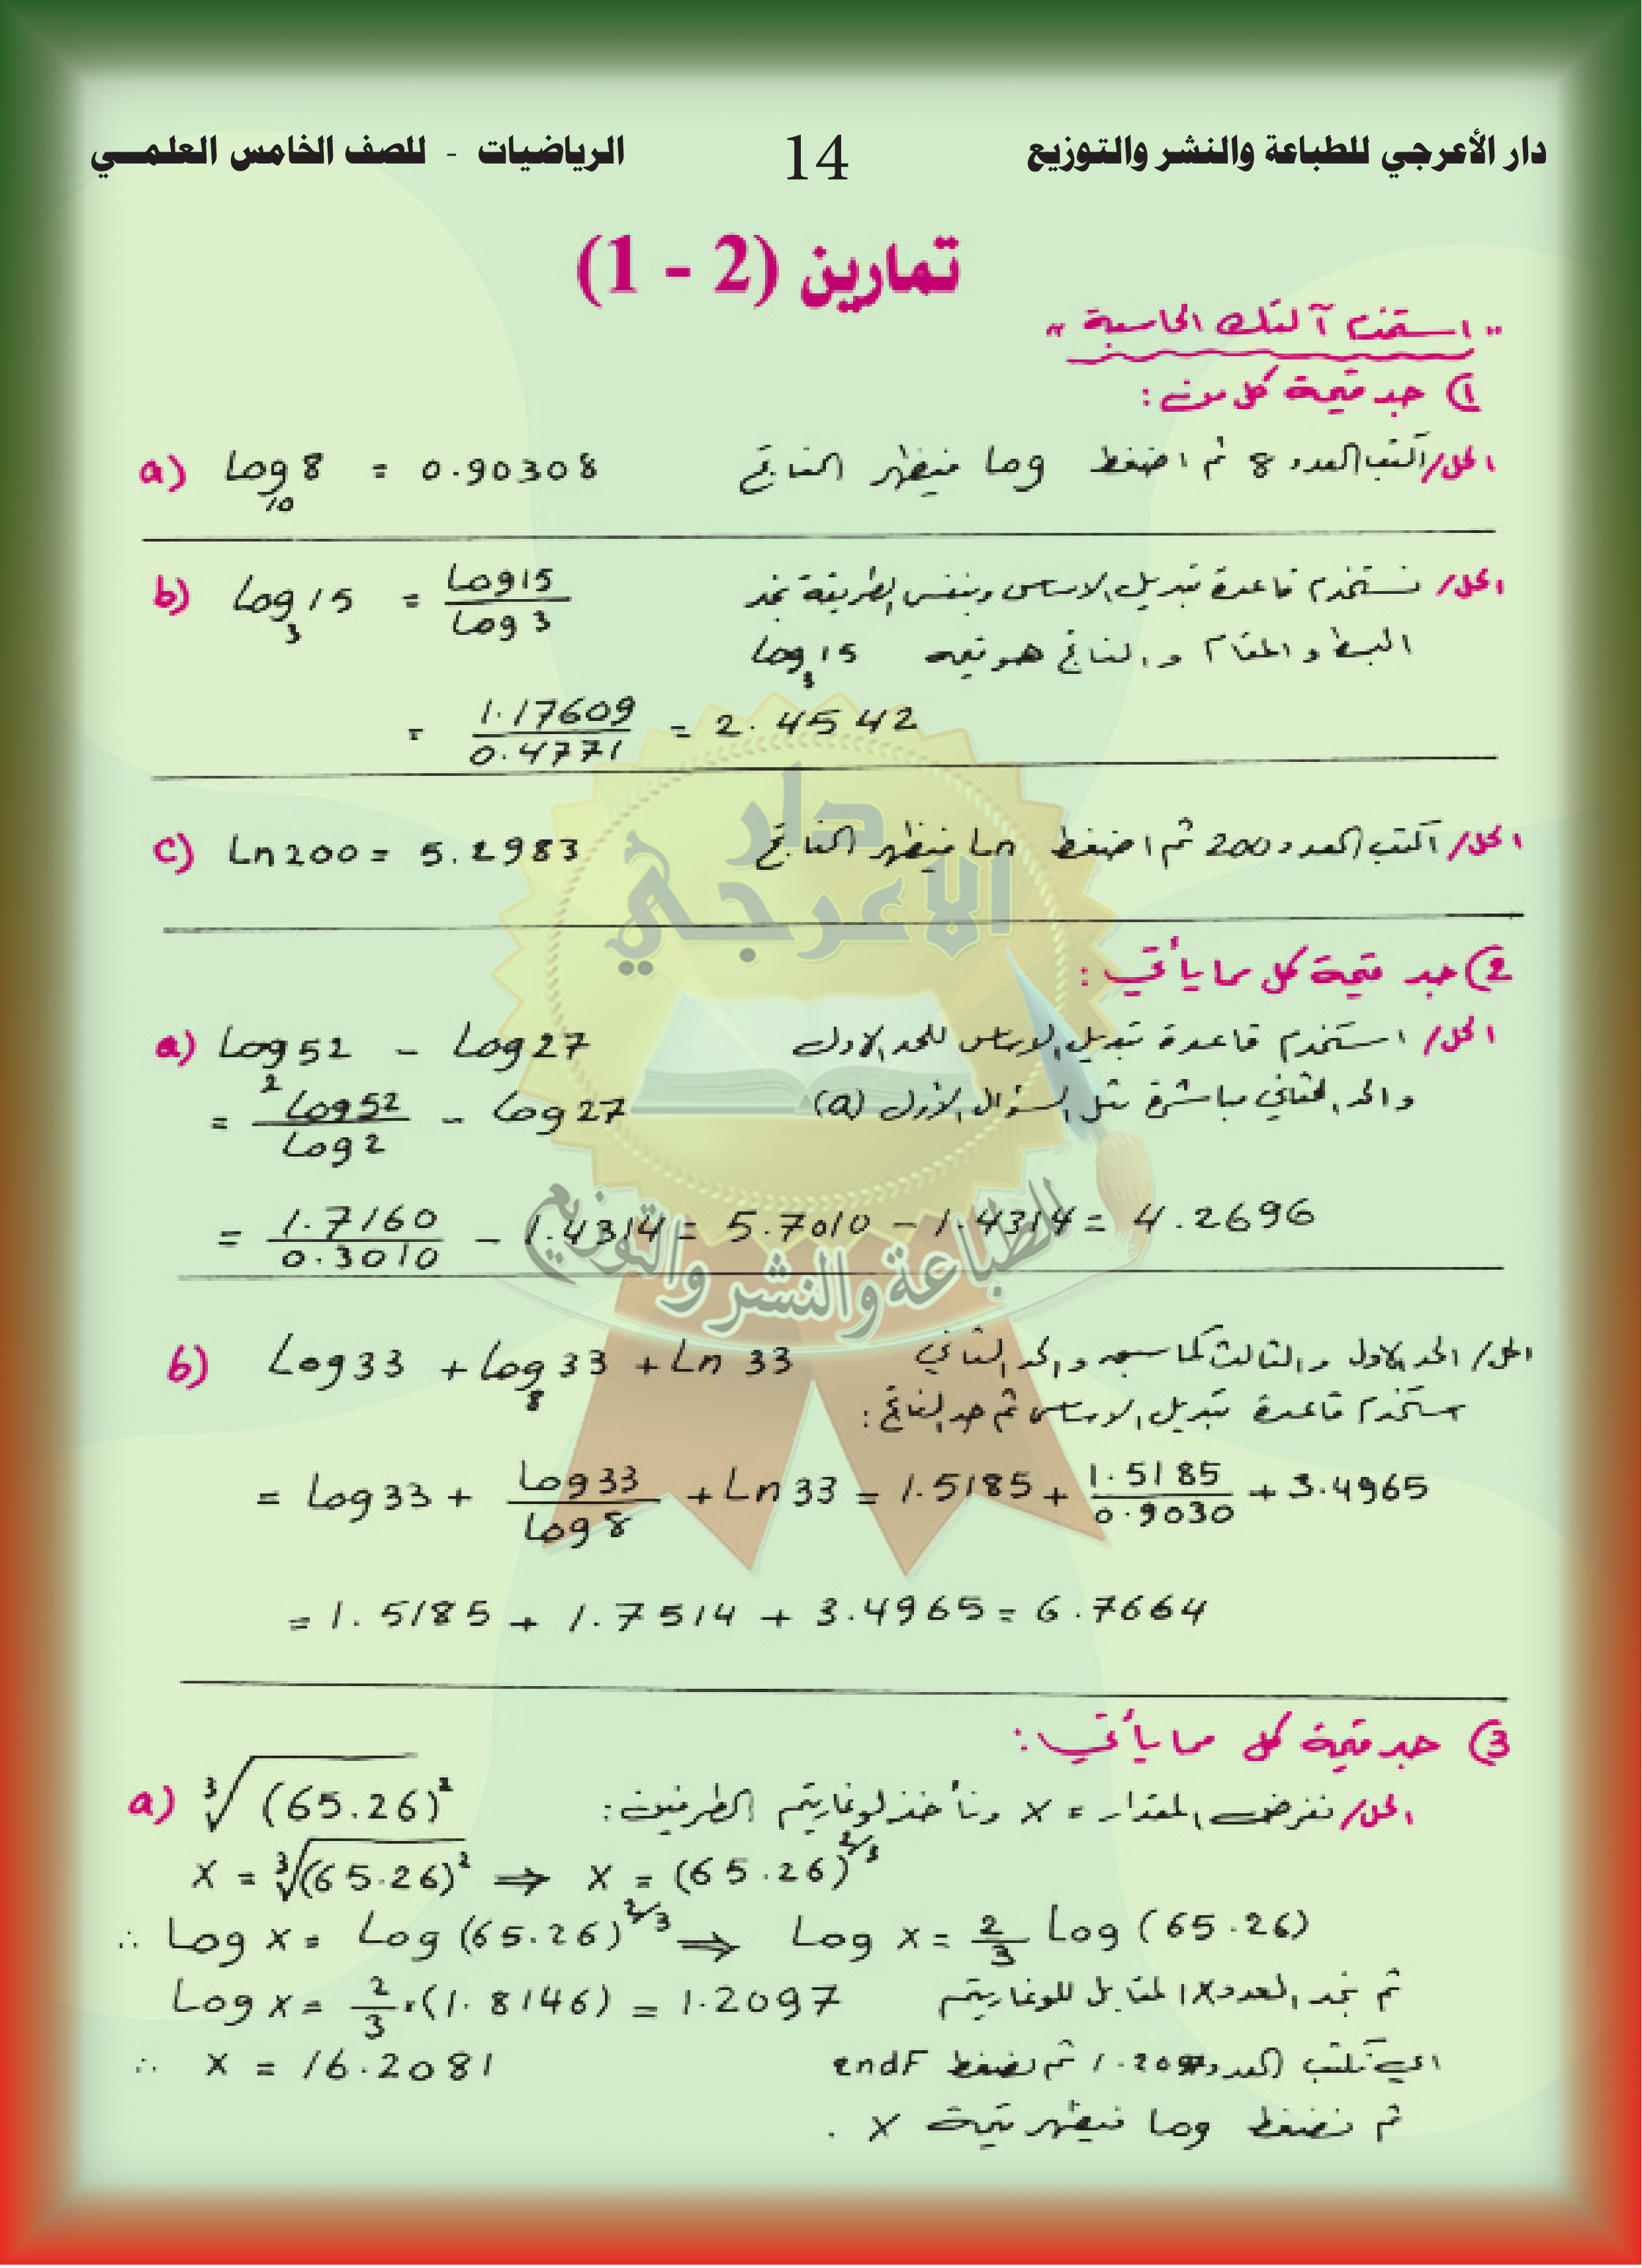 دار الأعرجي للطباعة والنشر والتوزيع 14 الرياضيات - للصف الخامس العلمــي
تمارين (2 - 1)
"استخدم آلتك الحاسبة"
1) جد قيمة كل من :
a) Log₁₀ 8 = 0.90308 الحل/ اكتب العدد 8 ثم اضغط log فيظهر الناتج
b) Log₃ 15 = Log15 / Log 3 الحل/ نستخدم قاعدة تبديل الاساس وبنفس الطريقة نجد
البسط والمقام والناتج هو قيمة log₃ 15
= 1.17609 / 0.4771 = 2.4542
c) Ln200 = 5.2983 الحل/ اكتب العدد 200 ثم اضغط Ln فيظهر الناتج
2) جد قيمة كل مما يأتي :
a) Log₂ 52 - Log27 الحل/ استخدم قاعدة تبديل الاساس للحد الاول
= Log52 / Log2 - Log27 والحد الثاني مباشرة مثل السؤال الاول (a)
= 1.7160 / 0.3010 - 1.4314 = 5.7010 - 1.4314 = 4.2696
b) Log33 + Log₈ 33 + Ln 33 الحل/ الحد الاول والثالث كما سبق والحد الثاني
نستخدم قاعدة تبديل الاساس ثم جد الناتج :
= Log33 + Log33 / Log8 + Ln33 = 1.5185 + 1.5185 / 0.9030 + 3.4965
= 1.5185 + 1.7514 + 3.4965 = 6.7664
3) جد قيمة كل مما يأتي :
a) ³√(65.26)² الحل/ نفرض المقدار = X ونأخذ لوغاريتم الطرفين :
X = ³√(65.26)² ⇒ X = (65.26)^2/3
∴ Log X = Log (65.26)^2/3 ⇒ Log X = 2/3 Log (65.26)
Log X = 2/3 · (1.8146) = 1.2097 ثم نجد العدد X المقابل للوغاريتم
∴ X = 16.2081 اي نكتب العدد 1.2097 ثم نضغط 2ndF
ثم نضغط log فيظهر قيمة X .
دار
الاعرجي
للطباعة والنشر والتوزيع